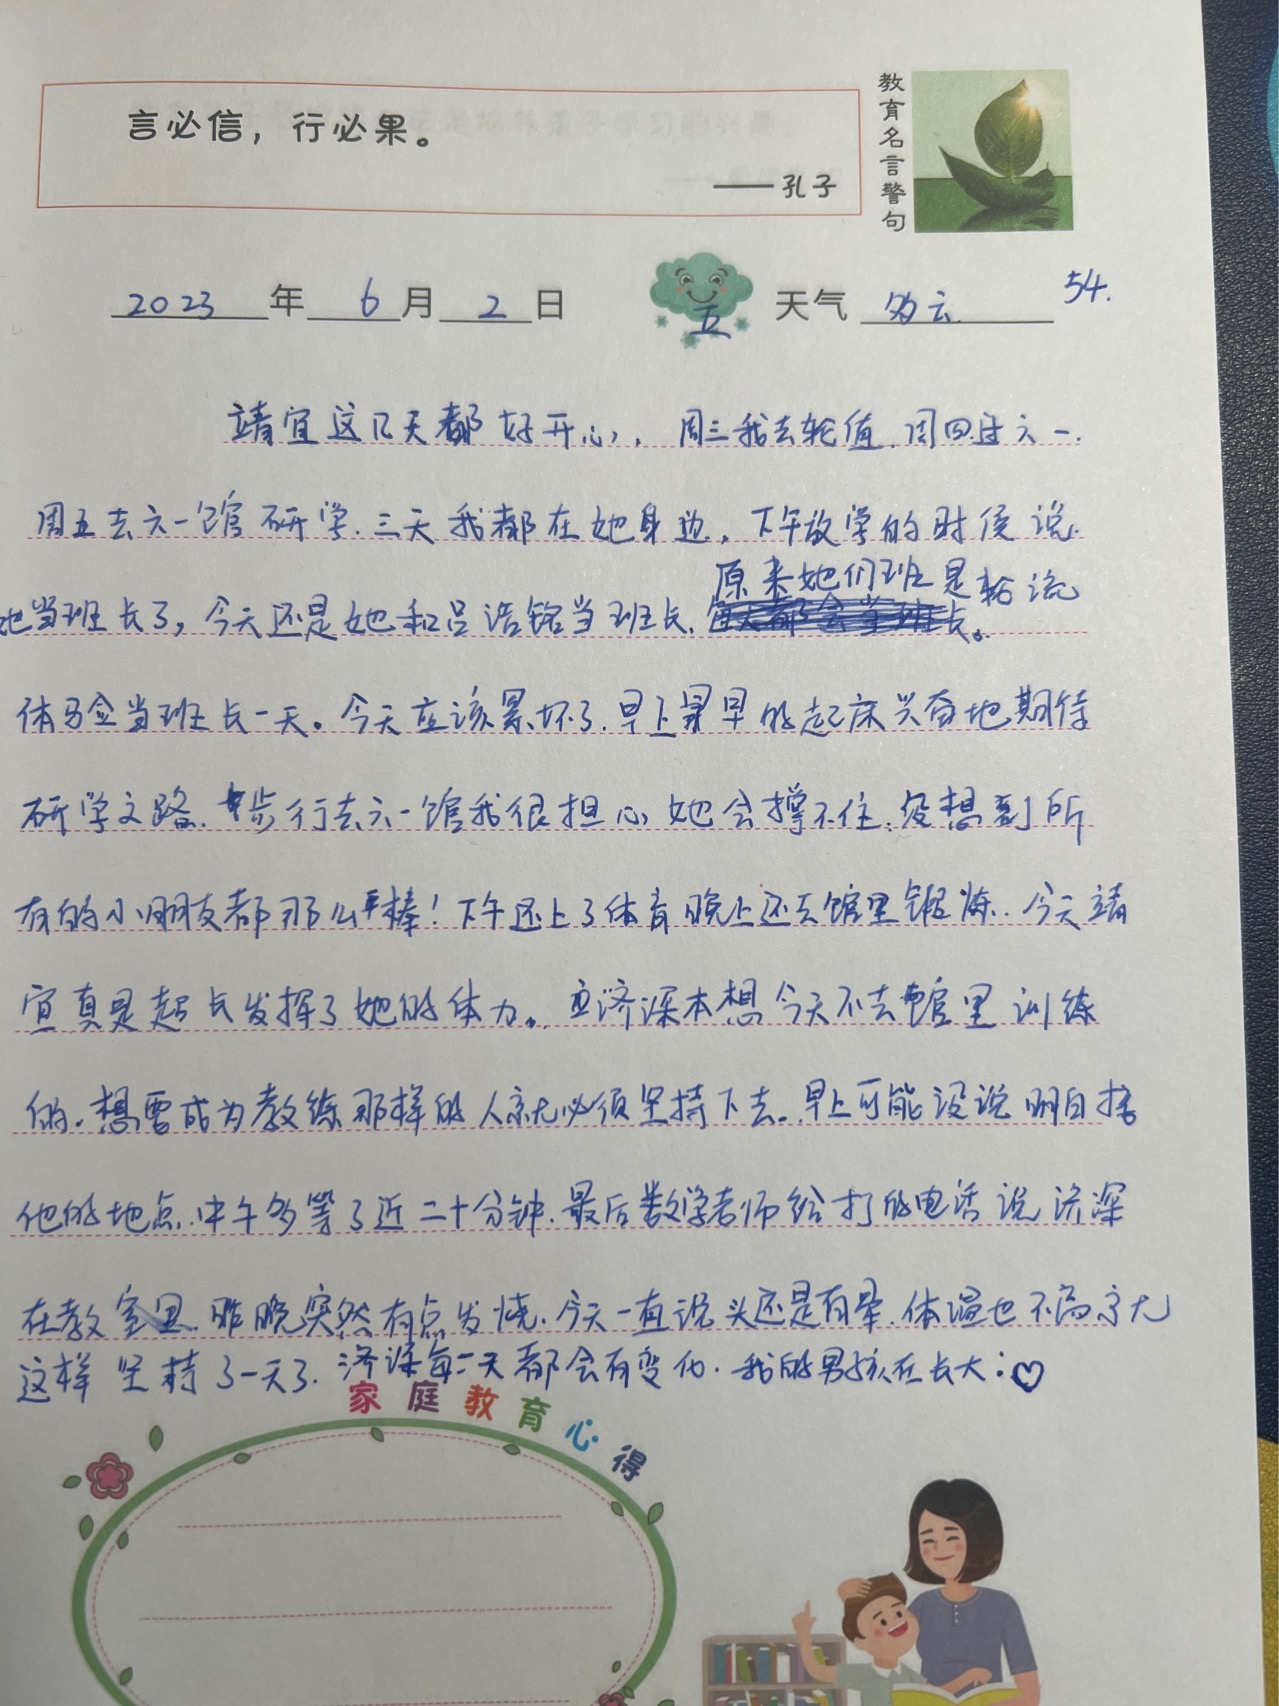 言必信，行必果。
——孔子
教育名言警句
2023年6月2日 五 天气 多云 54.
靖宜这几天都好开心，周三我去轮值.周四过六一.
周五去六一馆研学.三天我都在她身边，下午放学的时候说.
原来她们班是轮流
她当班长了，今天还是她和吕浩铭当班长.
体验当班长一天。今天应该累坏了.早上最早的起床兴奋地期待
研学之路.步行去六一馆我很担心她会撑不住.没想到所
有的小朋友都那么棒！下午还上了体育晚上还去馆里锻炼.今天靖
宜真是超长发挥了她的体力。济深本想今天不去馆里训练
的.想要成为教练那样的人就必须坚持下去.早上可能没说明白接
他的地点.中午多等了近二十分钟.最后数学老师给打的电话说济深
在教室里.昨晚突然有点发烧.今天一直说头还是有晕.体温也不高就
这样坚持了一天了.济深每一天都会有变化.我的男孩在长大：♡
家庭教育心得